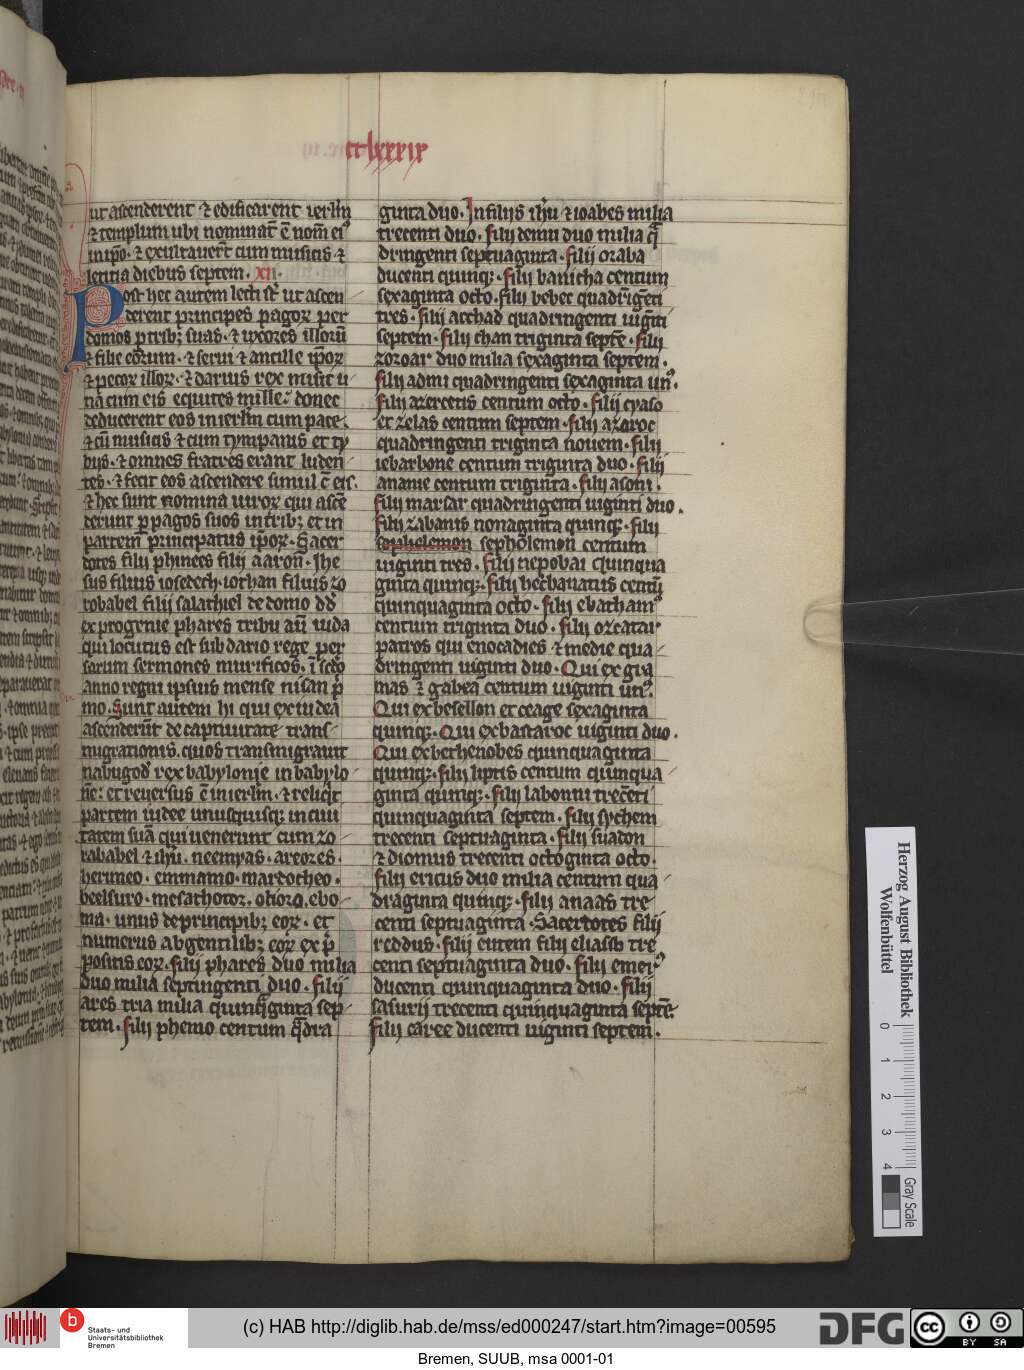 cclxxxix
ut ascenderent ⁊ edificarent ierl̅m
⁊ templum ubi nominat̅ e̅ nom̅ eiꝰ
in ip̅o. ⁊ exultauert̅ cum musicis ⁊
letitia diebus septem. xij.
Post hec autem lecti st̅ ut ascen
derent principes pagoꝝ per
domos ꝑ tribꝫ suas. ⁊ uxores illoru̅
⁊ filie eorum. ⁊ serui ⁊ ancille ip̅oꝝ
⁊ pecoꝝ illoꝝ. ⁊ darius rex misit u
na cum eis equites mille: donec
deducerent eos in ierl̅m cum pace.
⁊ cu̅ musicis ⁊ cum tympanis et ty
bijs. ⁊ omnes fratres erant luden
tes. ⁊ fecit eos ascendere simul c̅ eis.
⁊ hec sunt nomina uiroꝝ qui asce̅
derunt ꝑ pagos suos in tribꝫ et in
partem principatus ip̅oꝝ. Sacer
dotes filij phinees filij aaron. Ihe
sus filius iosedech. iothan filius zo
robabel filij salathiel de domo d̅d̅
ex progenie phares tribu au̅ iuda
qui locutus est sub dario rege per
sarum sermones mirificos. i̅ sc̅do
anno regni ipsius mense nisan p̅
mo. Sunt autem hi qui ex iudea
ascenderu̅t de captiuitate trans
migrationis. quos transmigrauit
nabugod̅ rex babylonie in babylo
ne̅: et reuersus e̅ in ierl̅m. ⁊ reliq̅t
partem iudee unusquisqꝫ in ciui
tatem sua̅ qui uenerunt cum zo
rababel ⁊ ih̅u. neemyas. areores.
herimeo. emmanio. mardocheo.
beelsuro. mesathotoꝝ. olioro. ebo
ma. unus de principibꝫ eoꝝ. et
numerus a gentilibꝫ eoꝝ ex p̅
positis eoꝝ. filij phares duo milia
duo milia septingenti duo. filij
ares tria milia quinq̅ginta sep
tem. filij phemo centum q̅dra
ginta duo. In filijs ih̅u ⁊ ioabes milia
trecenti duo. filij demu duo milia q̅
dringenti septuaginta. filij ozaba
ducenti quinqꝫ. filij banicha centum
sexaginta octo. filij bebec quadri̅geti
tres. filij acchad quadringenti uigi̅ti
septem. filij chan triginta septe̅. filij
zozoar duo milia sexaginta septem.
filij admi quadringenti sexaginta un̅ꝰ.
filij azeretis centum octo. filij cyaso
et zelas centum septem. filij azaroc
quadringenti triginta nouem. filij
iebarbone centum triginta duo. filij
ananie centum triginta. filij asoni.
filij marsar quadringenti uiginti duo.
filij zabanis nonaginta quinqꝫ. filij
sepholemon centum
uiginti tres. filij nepobai quinqua
ginta quinqꝫ. filij hechanatus centu̅
quinquaginta octo. filij ebethamꝰ
centum triginta duo. filij orcatar
patros qui enocadies ⁊ medie qua
dringenti uiginti duo. Qui ex gra
mas ⁊ gabea centum uiginti un̅ꝰ.
Qui ex besellon et ceage sexaginta
quinqꝫ. Qui ex bastaroc uiginti duo.
Qui ex bethenobes quinquaginta
quinqꝫ. filij liptis centum quinqua
ginta quinqꝫ. filij labonni trece̅ti
quinquaginta septem. filij sychem
trecenti septuaginta. filij suadon
⁊ diomus trecenti octoginta octo.
filij ericus duo milia centum qua
draginta quinqꝫ. filij anaas tre
centi septuaginta. Sacerdotes filij
reddus. filij eutem filij eliasib tre
centi septuaginta duo. filij emeriꝰ
ducenti quinquaginta duo. filij
fasurij trecenti quinquaginta septe̅.
filij caree ducenti uiginti septem.
Herzog August Bibliothek
Wolfenbüttel
0 1 2 3 4
Gray Scale
b
Staats- und
Universitätsbibliothek
Bremen
(c) HAB http://diglib.hab.de/mss/ed000247/start.htm?image=00595
DFG
cc
BY SA
Bremen, SUUB, msa 0001-01